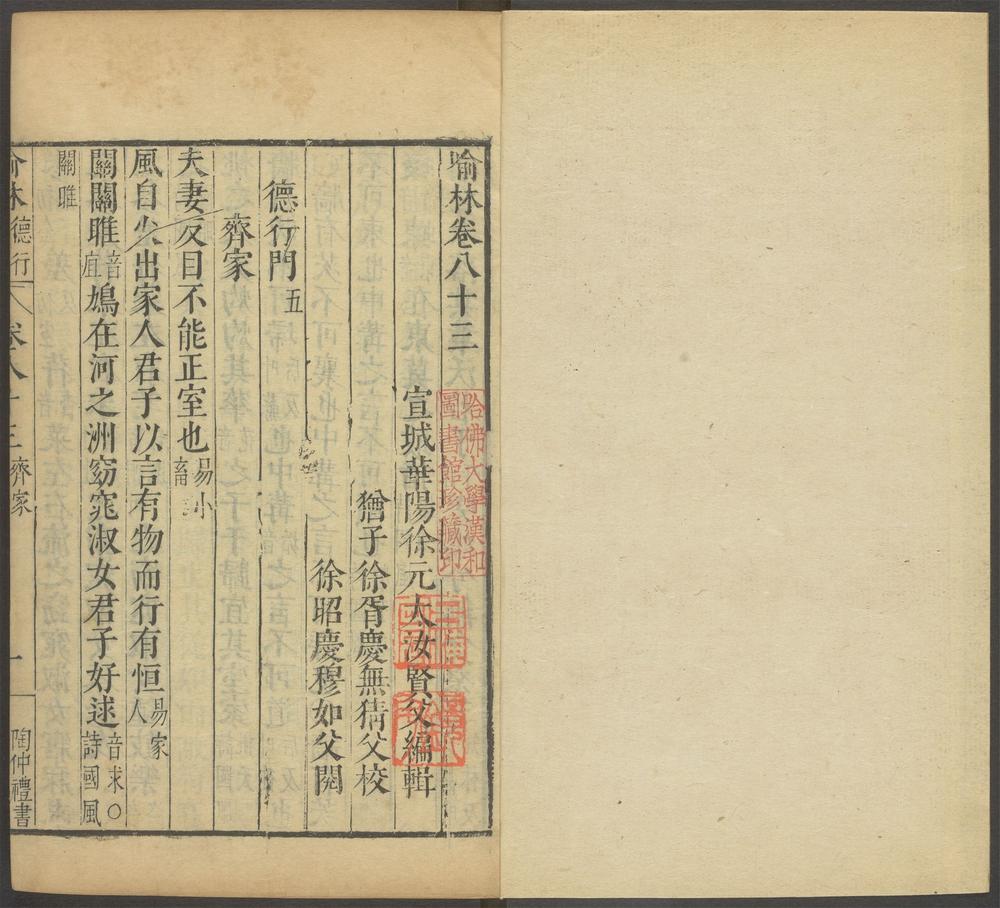 喻林卷八十三
哈佛大學漢和
圖書館珍藏印
宣城華陽徐元太汝賢父編輯
猶子徐胥慶無猜父校
徐昭慶穆如父閱
德行門五
齊家
夫妻反目不能正室也易小畜
風自火出家人君子以言有物而行有恒易家人
關關雎音疽鳩在河之洲窈窕淑女君子好逑音求○詩國風
關雎
喻林德行 卷八十三 齊家 一 陶仲禮書